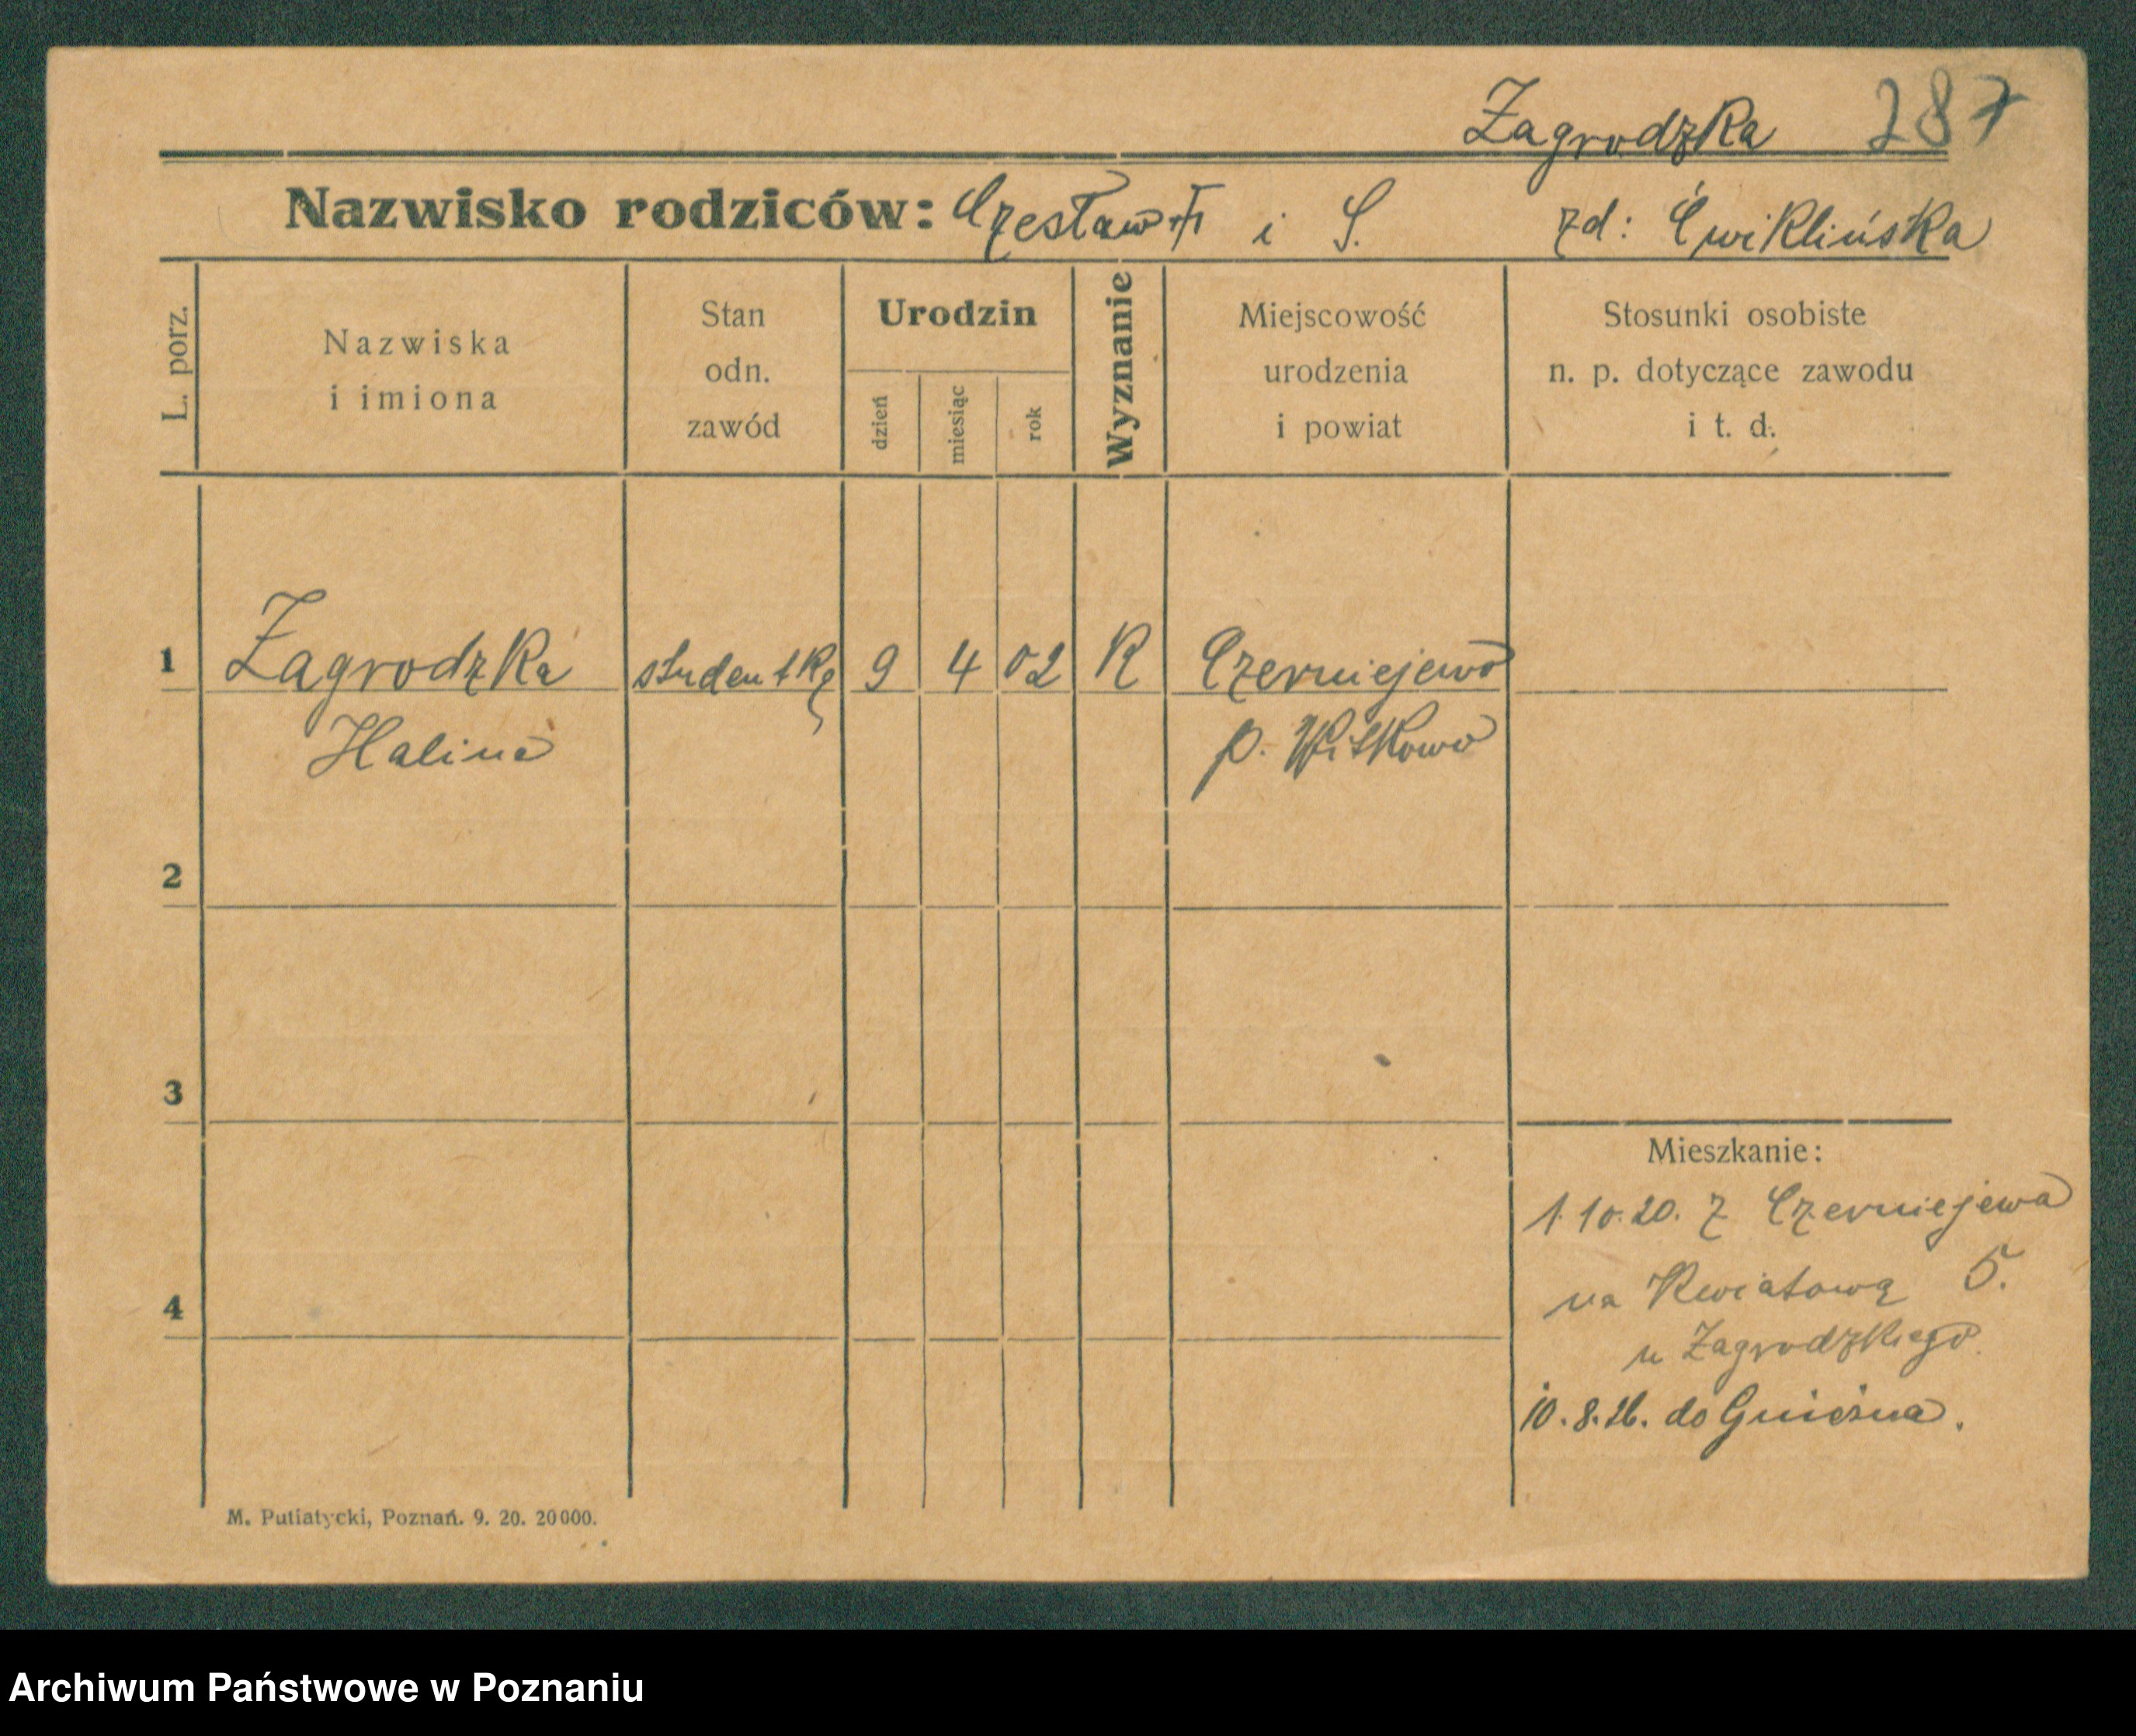 Zagrodzka 287
Nazwisko rodziców: Czesław † i S. zd: Ćwiklińska
L. porz.
Nazwiska
i imiona
Stan
odn.
zawód
Urodzin
dzień
miesiąc
rok
Wyznanie
Miejscowość
urodzenia
i powiat
Stosunki osobiste
n. p. dotyczące zawodu
i t. d.
1 Zagrodzka studentka 9 4 02 K Czerniejewo
Halina p. Witkowo
2
3
Mieszkanie:
1.10.20. z Czerniejewa
na Kwiatową 5.
4
u Zagrodzkiego.
10.8.26. do Gniezna.
M. Putiatycki, Poznań. 9. 20. 20000.
Archiwum Państwowe w Poznaniu